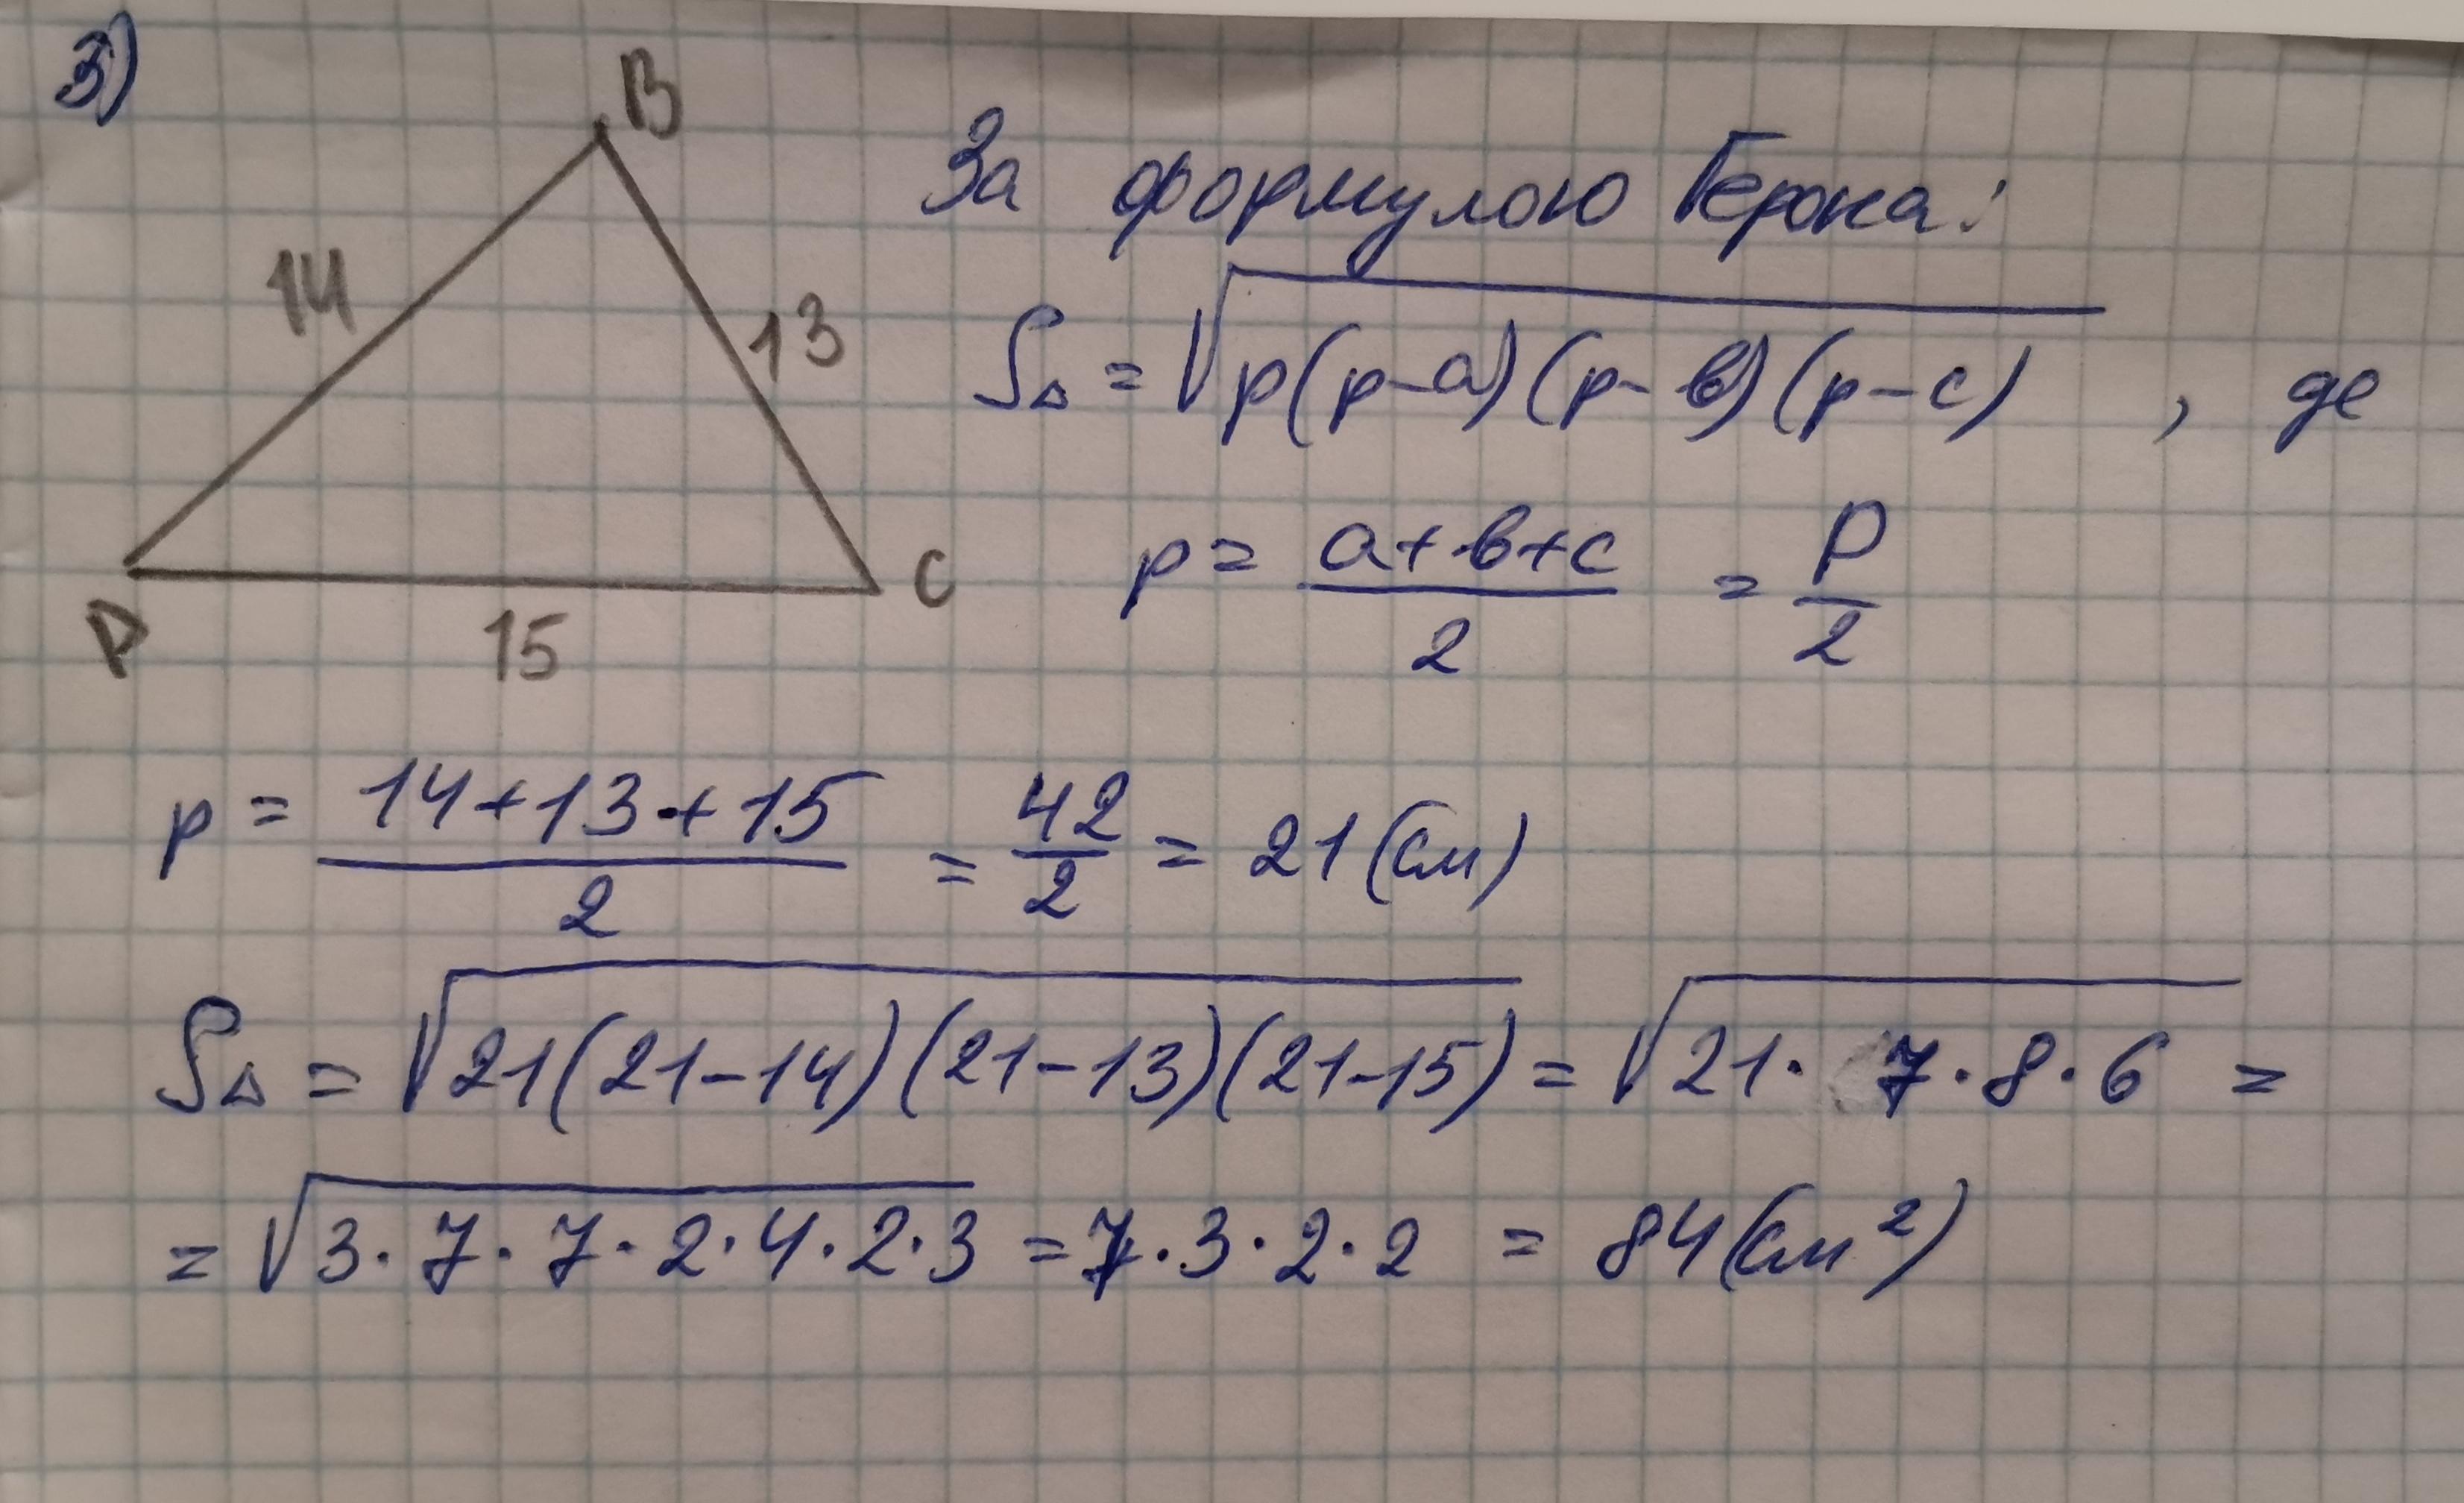 3)
B
14
13
P
15
C
За формулою Герона:
S△ = √p(p-a)(p-в)(p-c) , де
p = a+в+c/2 = P/2
p = 14+13+15/2 = 42/2 = 21(см)
S△ = √21(21-14)(21-13)(21-15) = √21· 7·8·6 =
= √3·7·7·2·4·2·3 = 7·3·2·2 = 84(см²)